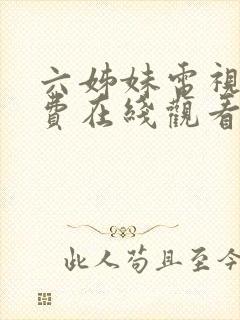 六姊妹電視
費在綫觀看
此人苟且至今